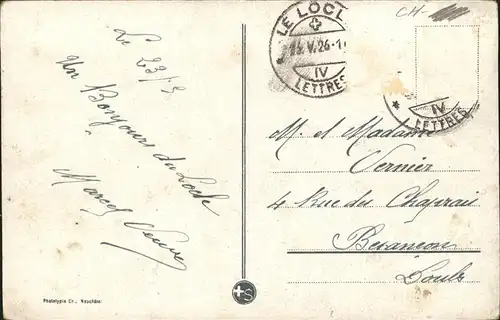 Le 23/5
Un Bonjour du Locle
Marcel
LE LOCL
V.26-1
IV
LETTRES
IV
LETTRES
CH-
M. et Madame
Vernier
4 Rue du Chaprais
Besançon
Doubs
Phototypie Co., Neuchâtel
S